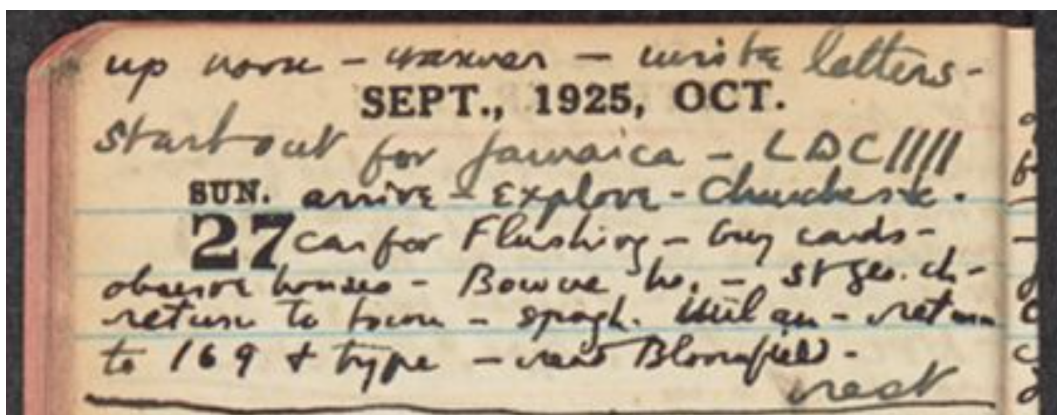 up noon - answer - write letters -
SEPT., 1925, OCT.
Start out for Jamaica - LDC////
SUN. arrive - explore - Churches &c.
27 car for Flushing - buy cards -
observe houses - Bowne ho. - St Geo. ch -
return to town - spagh. Milan - return
to 169 & type - read Bloomfield -
rest